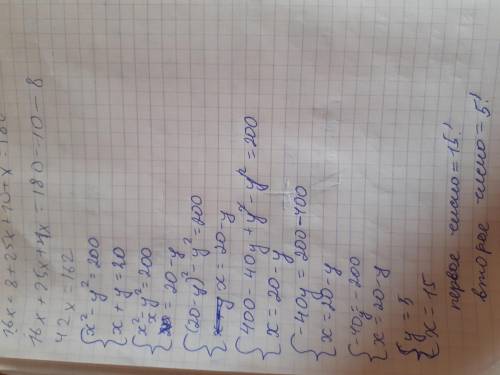 16x + 8 + 25x + 10 + x = 180
16x + 25x + 1x = 180 - 10 - 8
42x = 162
{ x² - y² = 200
{ x + y = 20
{ x² - y² = 200
{ x = 20 - y
{ (20-y)² - y² = 200
{ x = 20 - y
{ 400 - 40y + y² - y² = 200
{ x = 20 - y
{ -40y = 200 - 400
{ x = 20 - y
{ -40y = -200
{ x = 20 - y
{ y = 5
{ x = 15
первое число = 15!
второе число = 5!